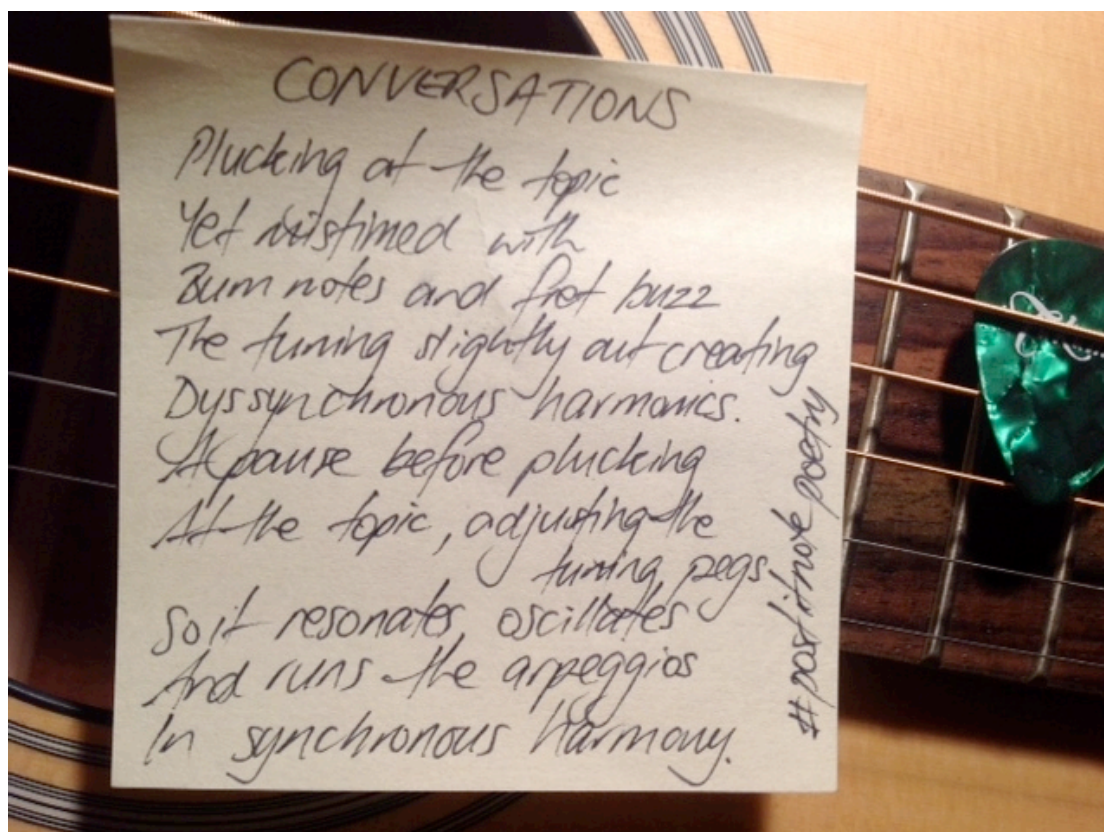 CONVERSATIONS
Plucking at the topic
Yet mistimed with
Bum notes and fret buzz
The tuning slightly out creating
Dyssynchronous harmonics.
A pause before plucking
At the topic, adjusting the
tuning pegs
So it resonates, oscillates
And runs the arpeggios
In synchronous harmony.
#postitnotepoetry